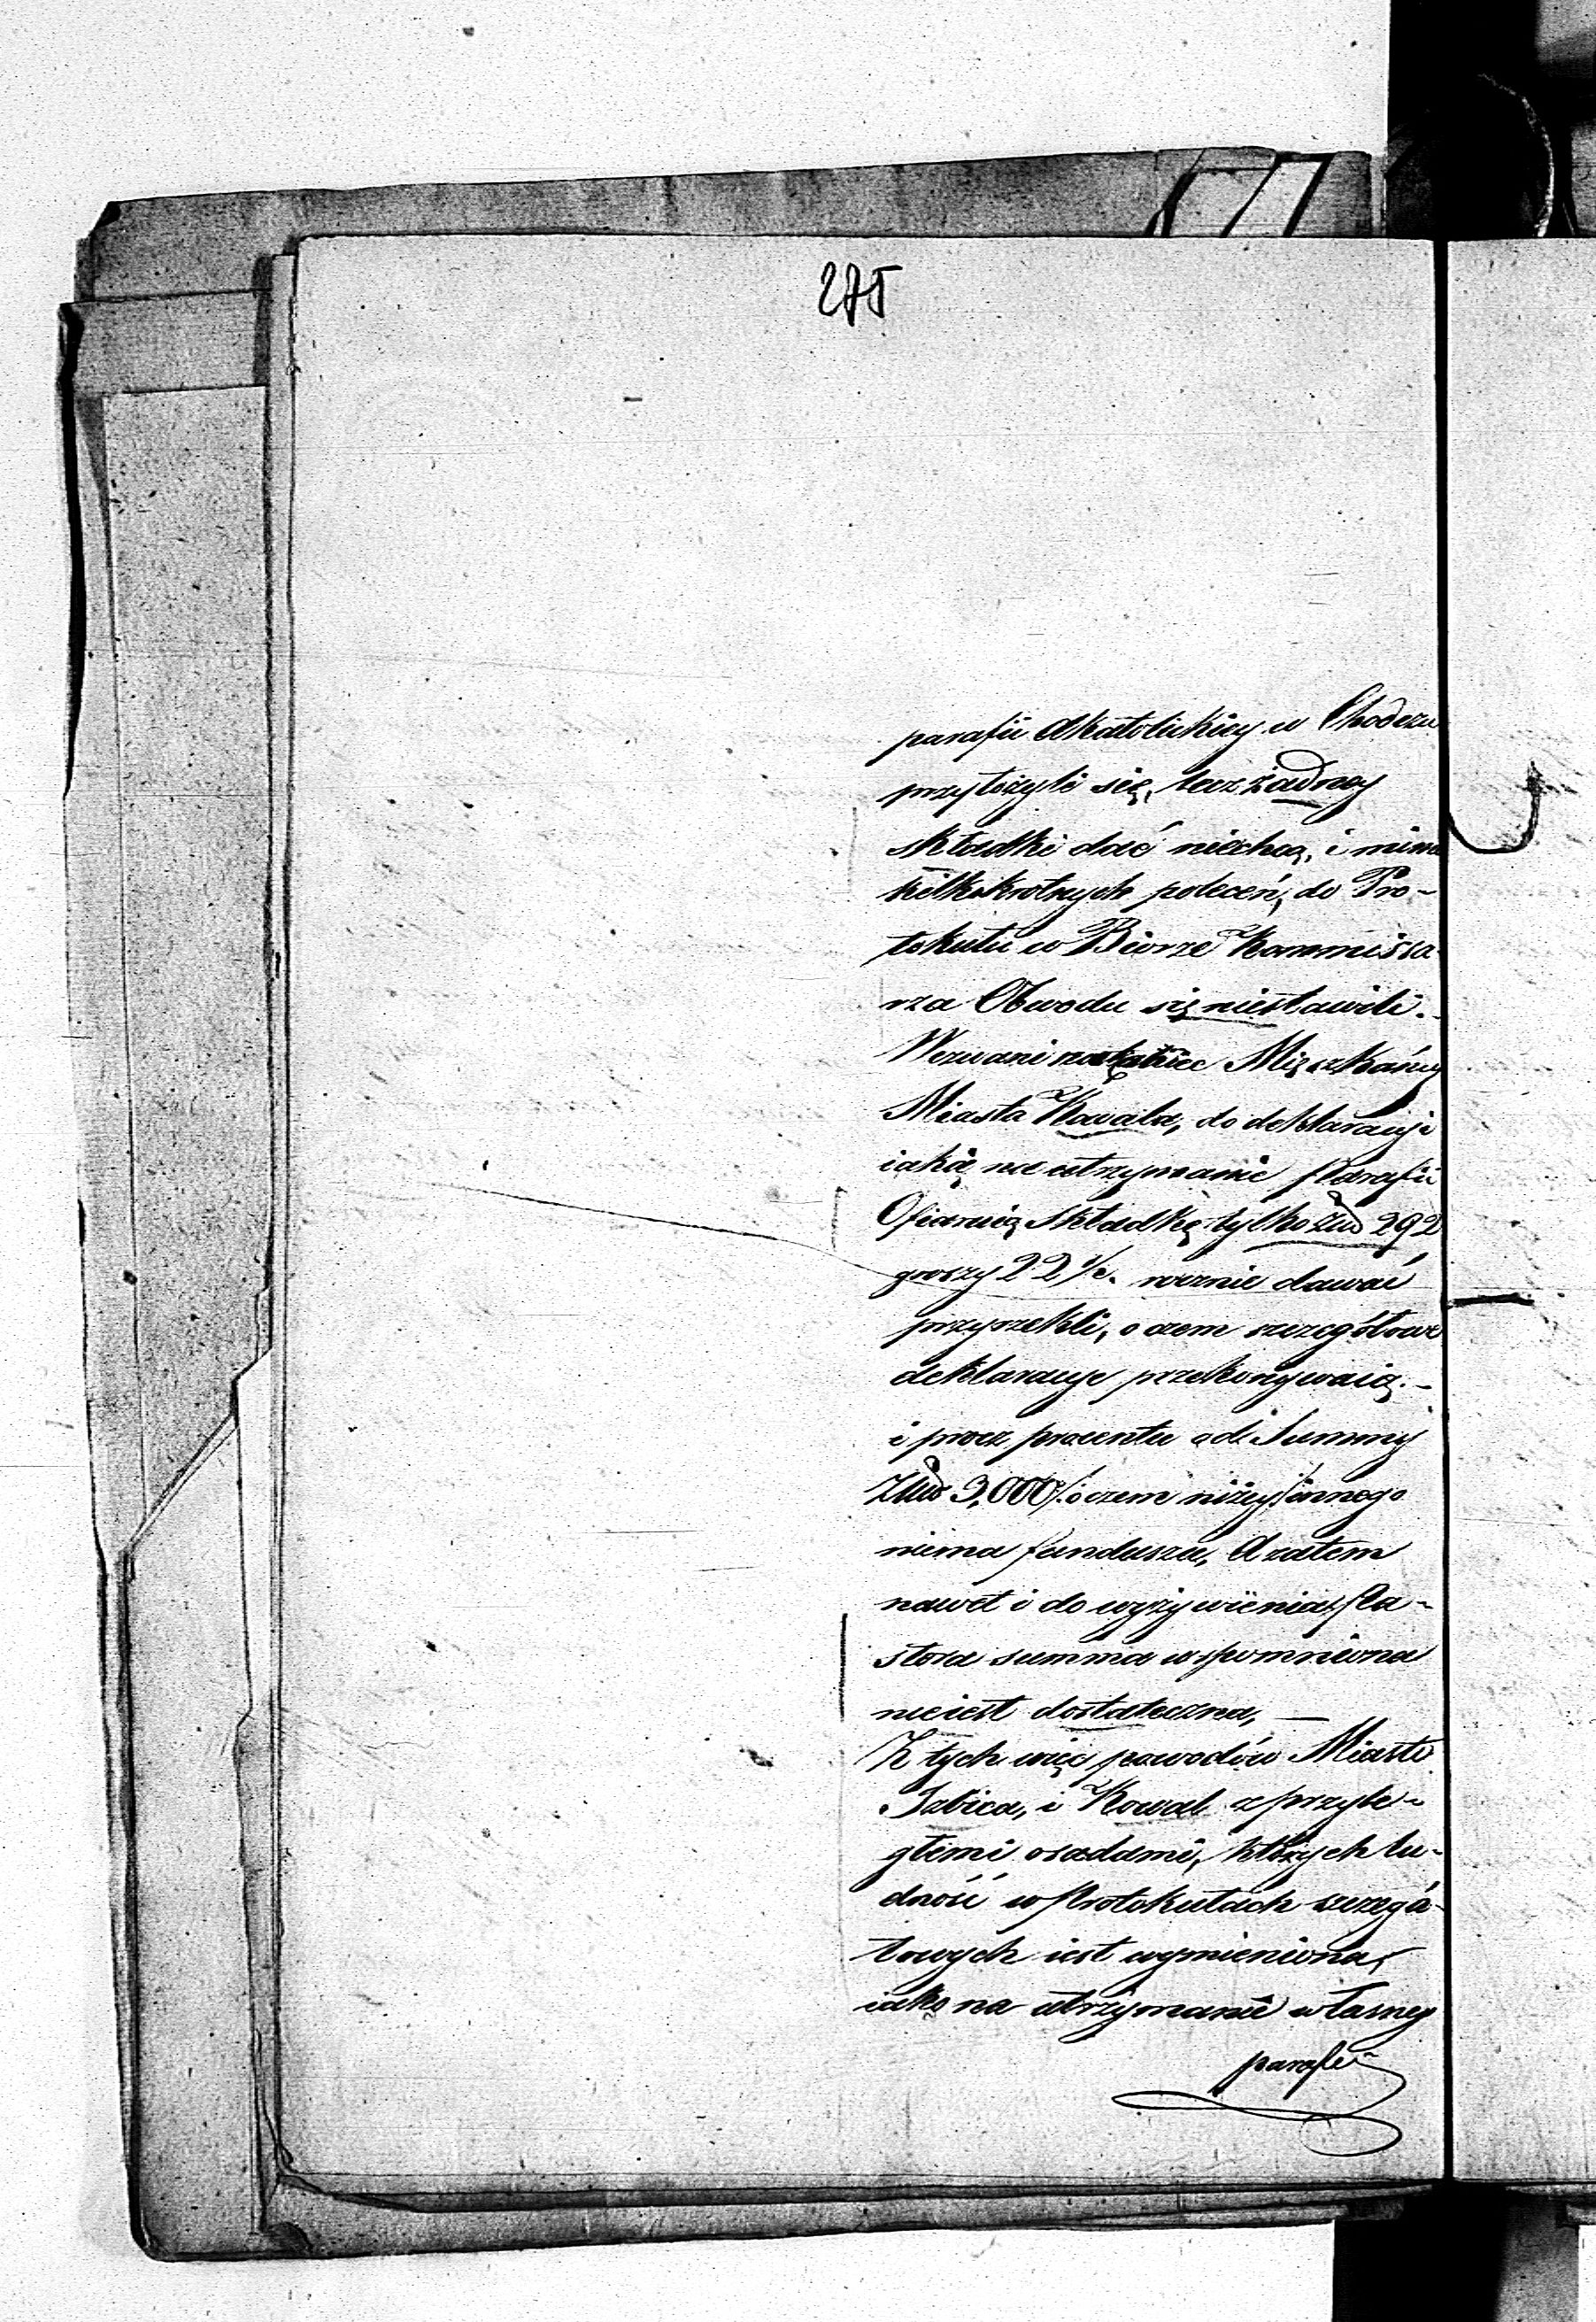 275
parafii Akatolickiey w Chodczu
przyłożyli się, lecz żadney
składki dać niechcą, i mimo
kilkokrotnych poleceń, do Pro-
tokułu w Biorze Kommissa-
rza Obwodu się niestawili.
Wezwani Mieszkańcy
Miasta Kowala, do deklaracyi
iaką na utrzymanie Parafii
Ofiaruią składkę, tylko Złp 292
groszy 22 1/2. rocznie dawać
przyrzekli, o czem szczegółowe
deklaracye przekonywaią. –
i procz procentu od Summy
Złp 3,000 /: o czem niżey :/ innego
niema funduszu, A zatem
nawet i do wyżywienia Pa-
stora summa wspomniona
nieiest dostateczna, —
Z tych więc powodów Miasta
Izbica, i Kowal z przyle-
głemi osadami, których lu-
dność w Protokułach szczegó-
łowych iest wymieniona,
iako na utrzymanie własney
parafii